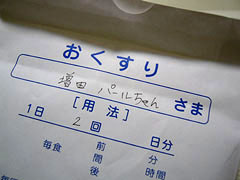 おくすり
増田 パールちゃん さま
[用法]
1日 2 回 日分
毎食 前 分
間 時間
後